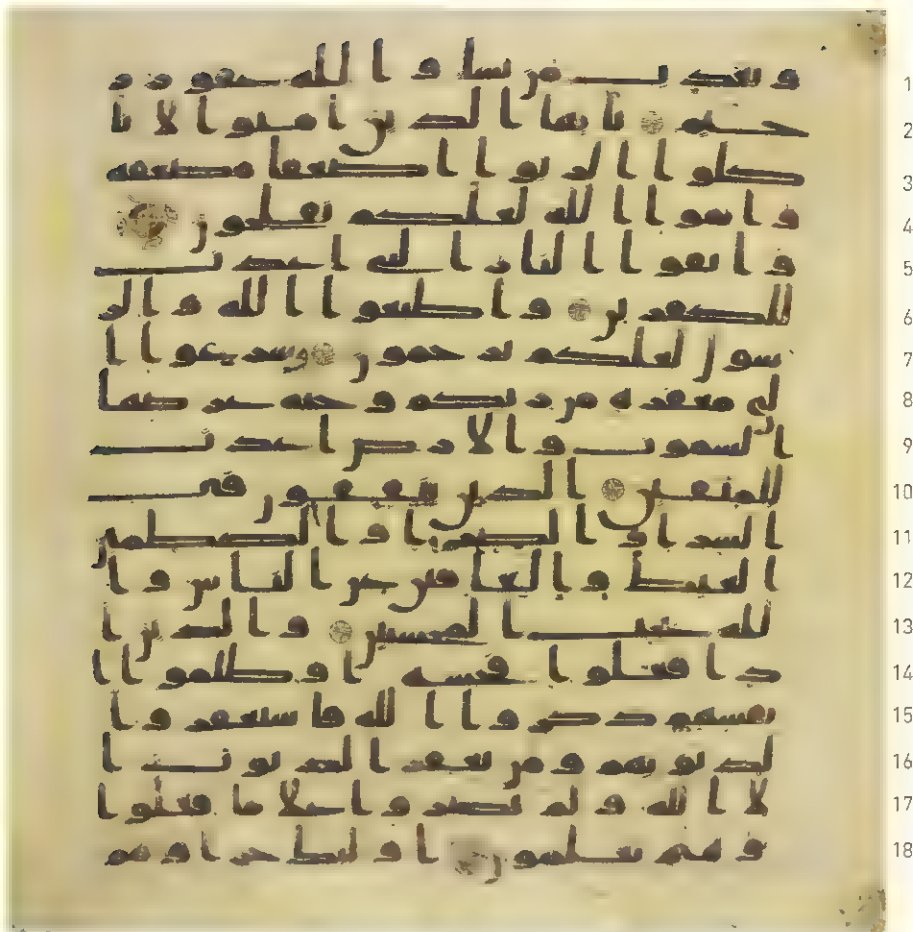 ويعذب من يشا والله غفور ر 1
حيم يايها الذين امنوا لا تا 2
كلوا الربوا اضعفا مضعفه 3
واتقوا الله لعلكم تفلحون 4
واتقوا النار التي اعدت 5
للكفرين واطيعوا الله والر 6
سول لعلكم ترحمون وسرعوا ا 7
لى مغفره من ربكم وجنه عرضها 8
السموت والارض اعدت 9
للمتقين الذين ينفقون في 10
السرا والضرا والكظمين 11
الغيظ والعافين عن الناس وا 12
لله يحب المحسنين والذين ا 13
ذا فعلوا فحشه او ظلموا ا 14
نفسهم ذكروا الله فاستغفروا 15
لذنوبهم ومن يغفر الذنوب ا 16
لا الله ولم يصروا علا ما فعلوا 17
وهم يعلمون اوليك جزاوهم 18